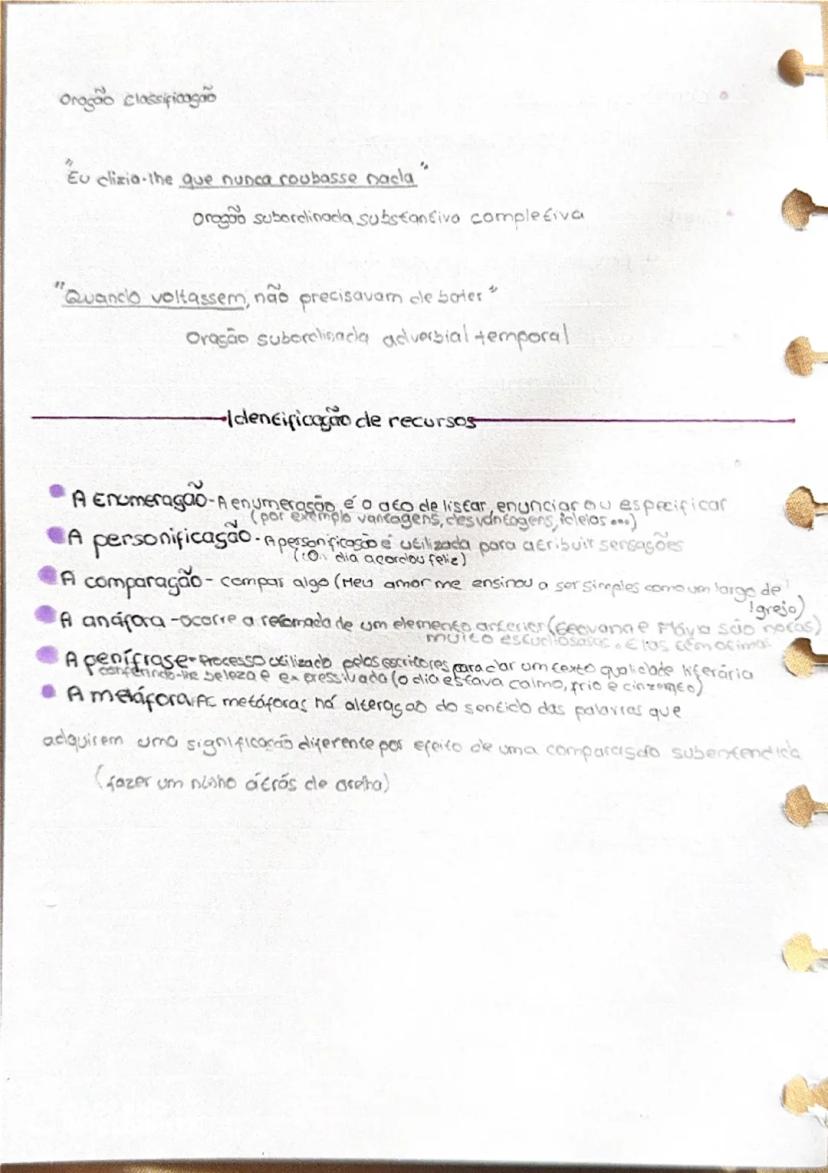 Oração classificação
"Eu dizia-lhe que nunca roubasse nada"
Oração subordinada substantiva completiva
"Quando voltassem, não precisavam de bater"
Oração subordinada adverbial temporal
Identificação de recursos
A Enumeração - A enumeração é o ato de listar, enunciar ou especificar
(por exemplo vantagens, desvantagens, ideias ...)
A personificação - A personificação é utilizada para atribuir sensações
(:O: dia acordou feliz)
A comparação - compar algo (Meu amor me ensinou a ser simples como um largo de
Igreja)
A anáfora - ocorre a retomada de um elemento anterior (Geovanna e Flávia são
muito estudiosas. Elas
A perífrase - Processo utilizado pelos escritores para dar um texto qualidade literária
conferindo-lhe beleza e expressivada (o dia estava calmo, frio e cinzento)
A metáfora metáforas há alteração do sentido das palavras que
adquirem uma significação diferente por efeito de uma comparação subentendida
(fazer um ninho átrás de orelha)